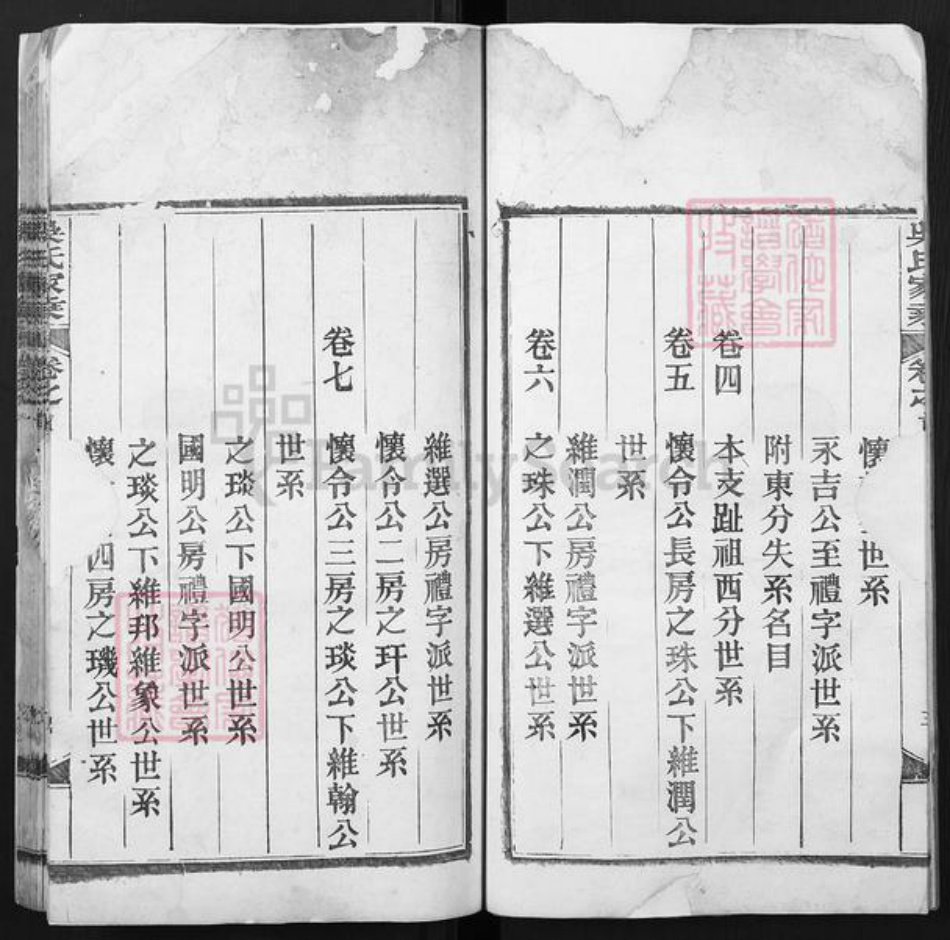 吳氏家乘
卷之首
懷
世系
永吉公至禮字派世系
附東分失系名目
卷四
本支趾祖西分世系
卷五
懷令公長房之珠公下維潤公
世系
維潤公房禮字派世系
卷六
之珠公下維選公世系
維選公房禮字派世系
懷令公二房之玕公世系
卷七
懷令公三房之琰公下維翰公
世系
之琰公下國明公世系
國明公房禮字派世系
之琰公下維邦維象公世系
懷
四房之璣公世系
吳氏家乘
卷之
FamilySearch